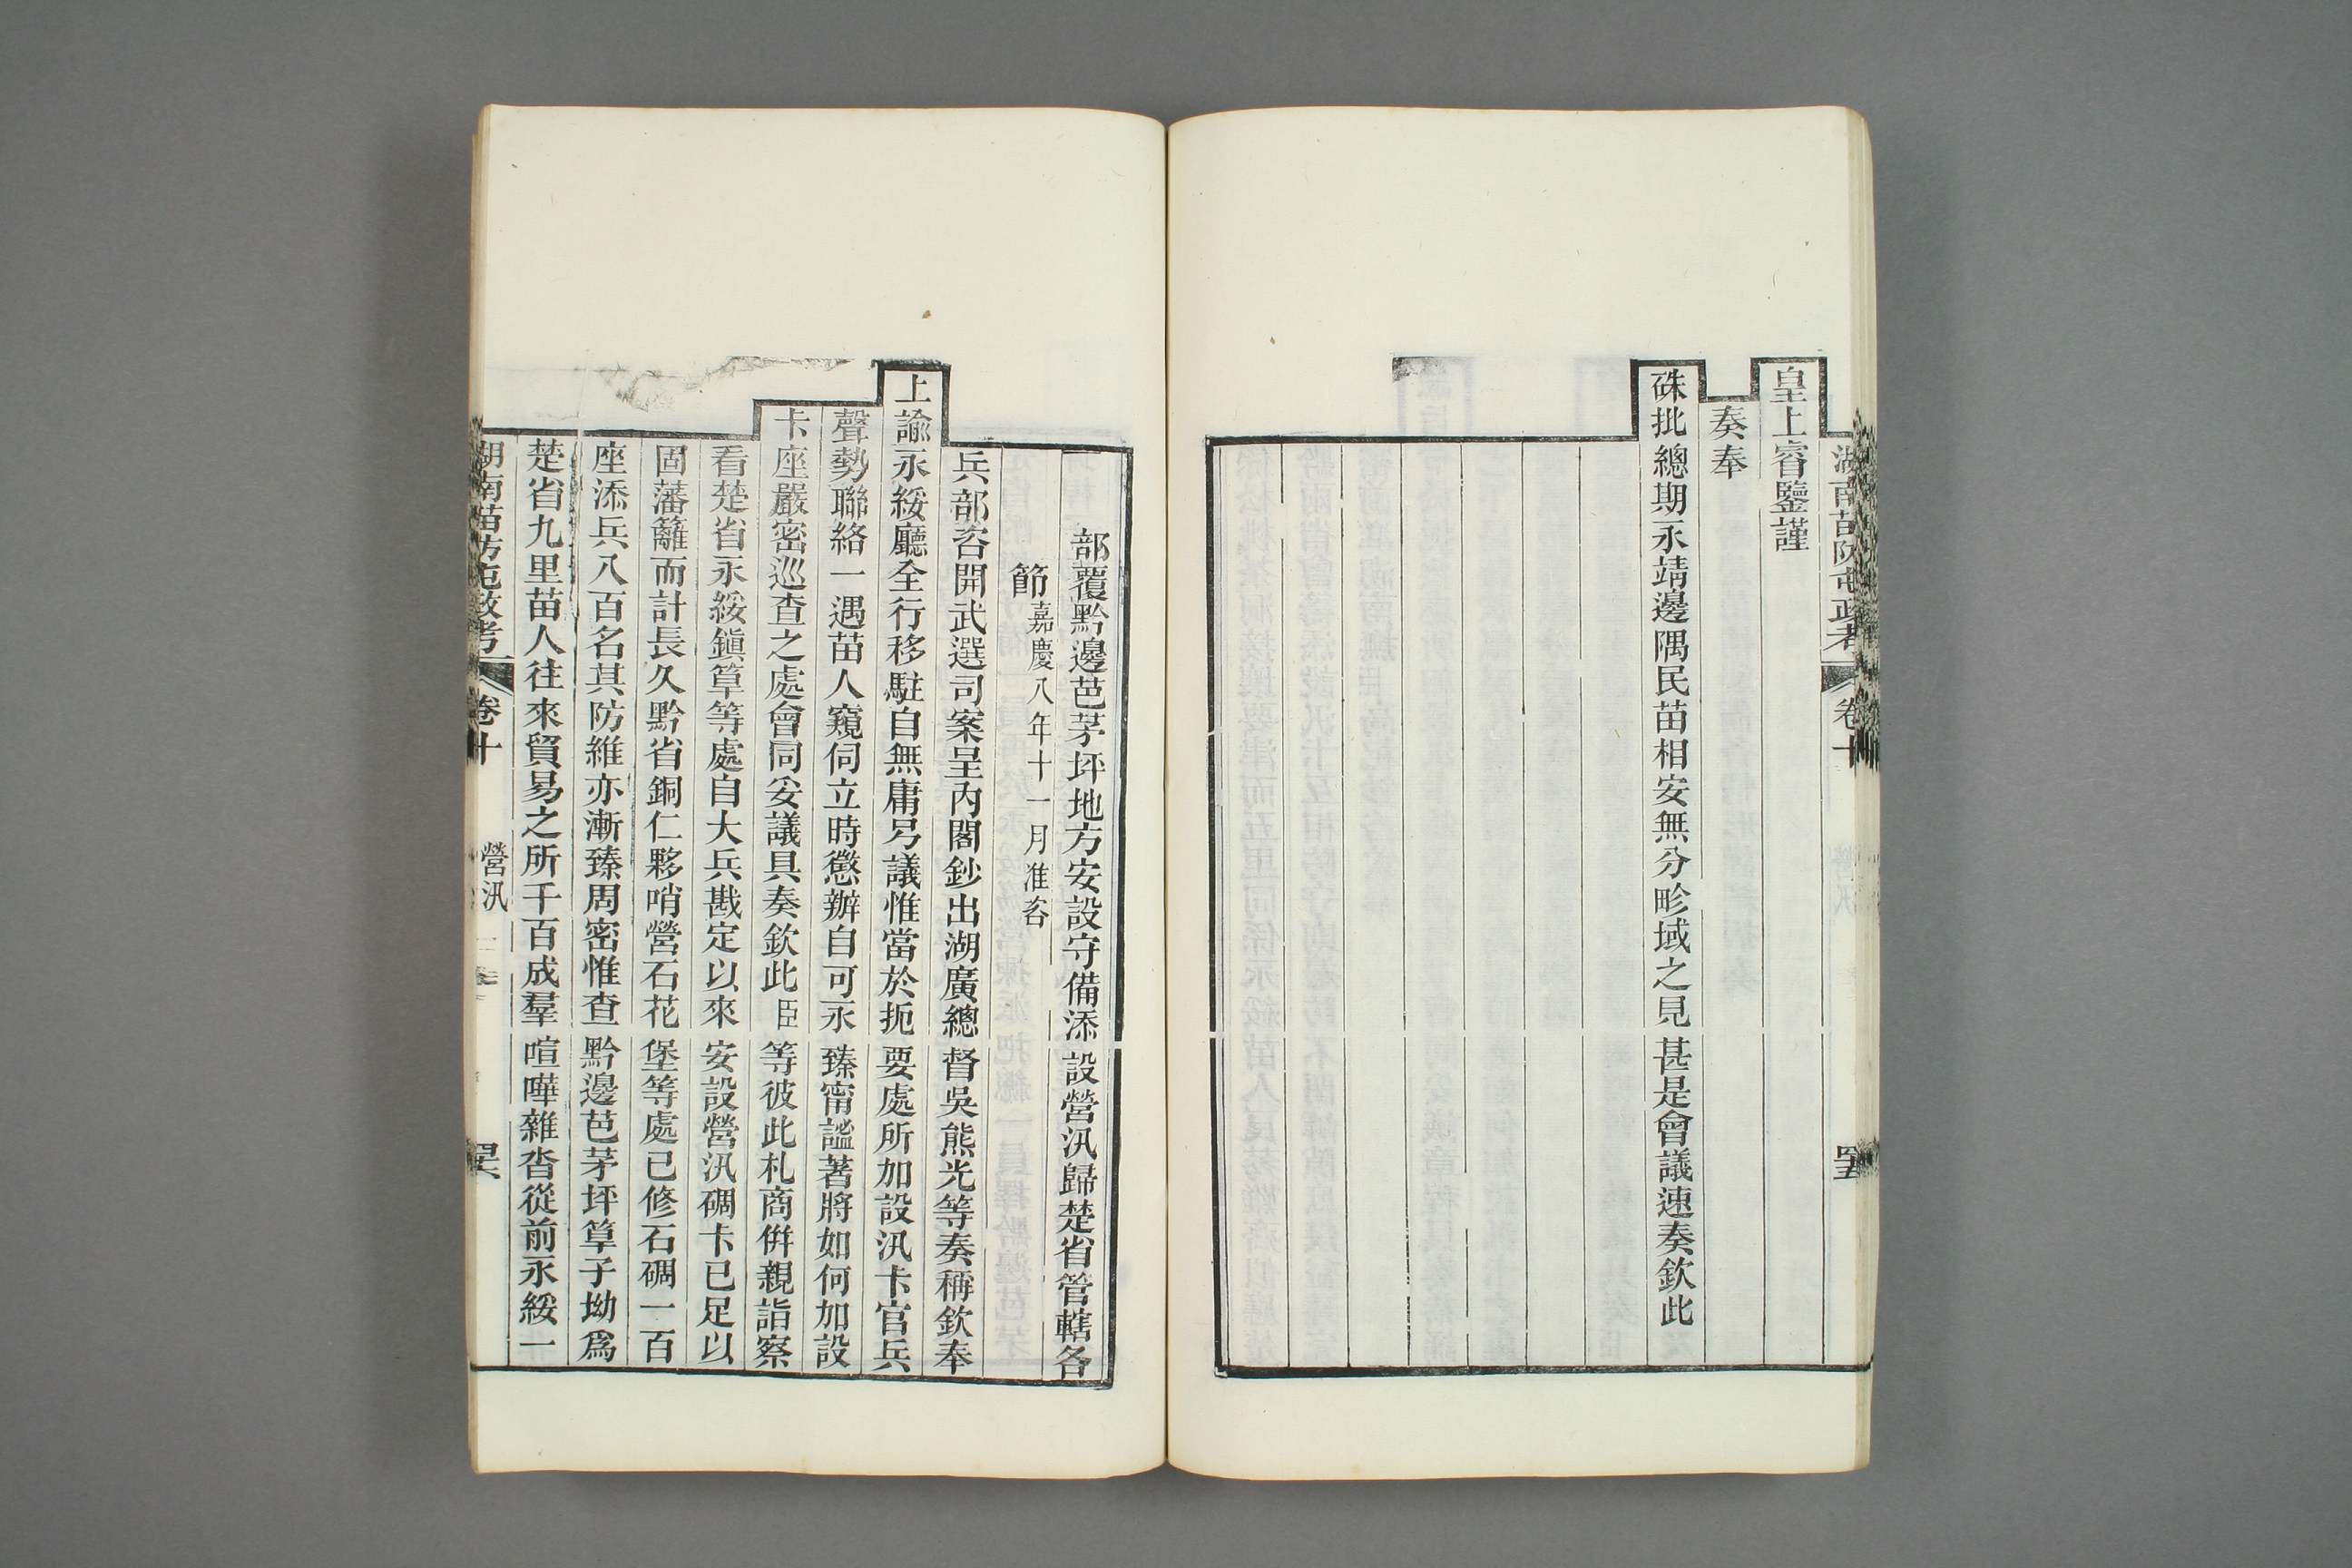 湖南苗防屯政考 卷十
皇上睿鑒謹
奏奉
硃批總期永靖邊隅民苗相安無分畛域之見甚是會議速奏欽此
部覆黔邊芭茅坪地方安設守備添設營汛歸楚省管轄各
節嘉慶八年十一月准咨
兵部咨開武選司案呈內閣鈔出湖廣總督吳熊光等奏稱欽奉
上諭永綏廳全行移駐自無庸另議惟當於扼要處所加設汛卡官兵
聲勢聯絡一遇苗人窺伺立時懲辦自可永臻甯謐著將如何加設
卡座嚴密巡查之處會同妥議具奏欽此臣等彼此札商倂親詣察
看楚省永綏鎭筸等處自大兵戡定以來安設營汛碉卡已足以
固藩籬而計長久黔省銅仁夥哨營石花堡等處已修石碉一百
座添兵八百名其防維亦漸臻周密惟查黔邊芭茅坪筸子坳爲
楚省九里苗人往來貿易之所千百成羣喧嘩雜沓從前永綏一
湖南苗防屯政考 卷十 營汛